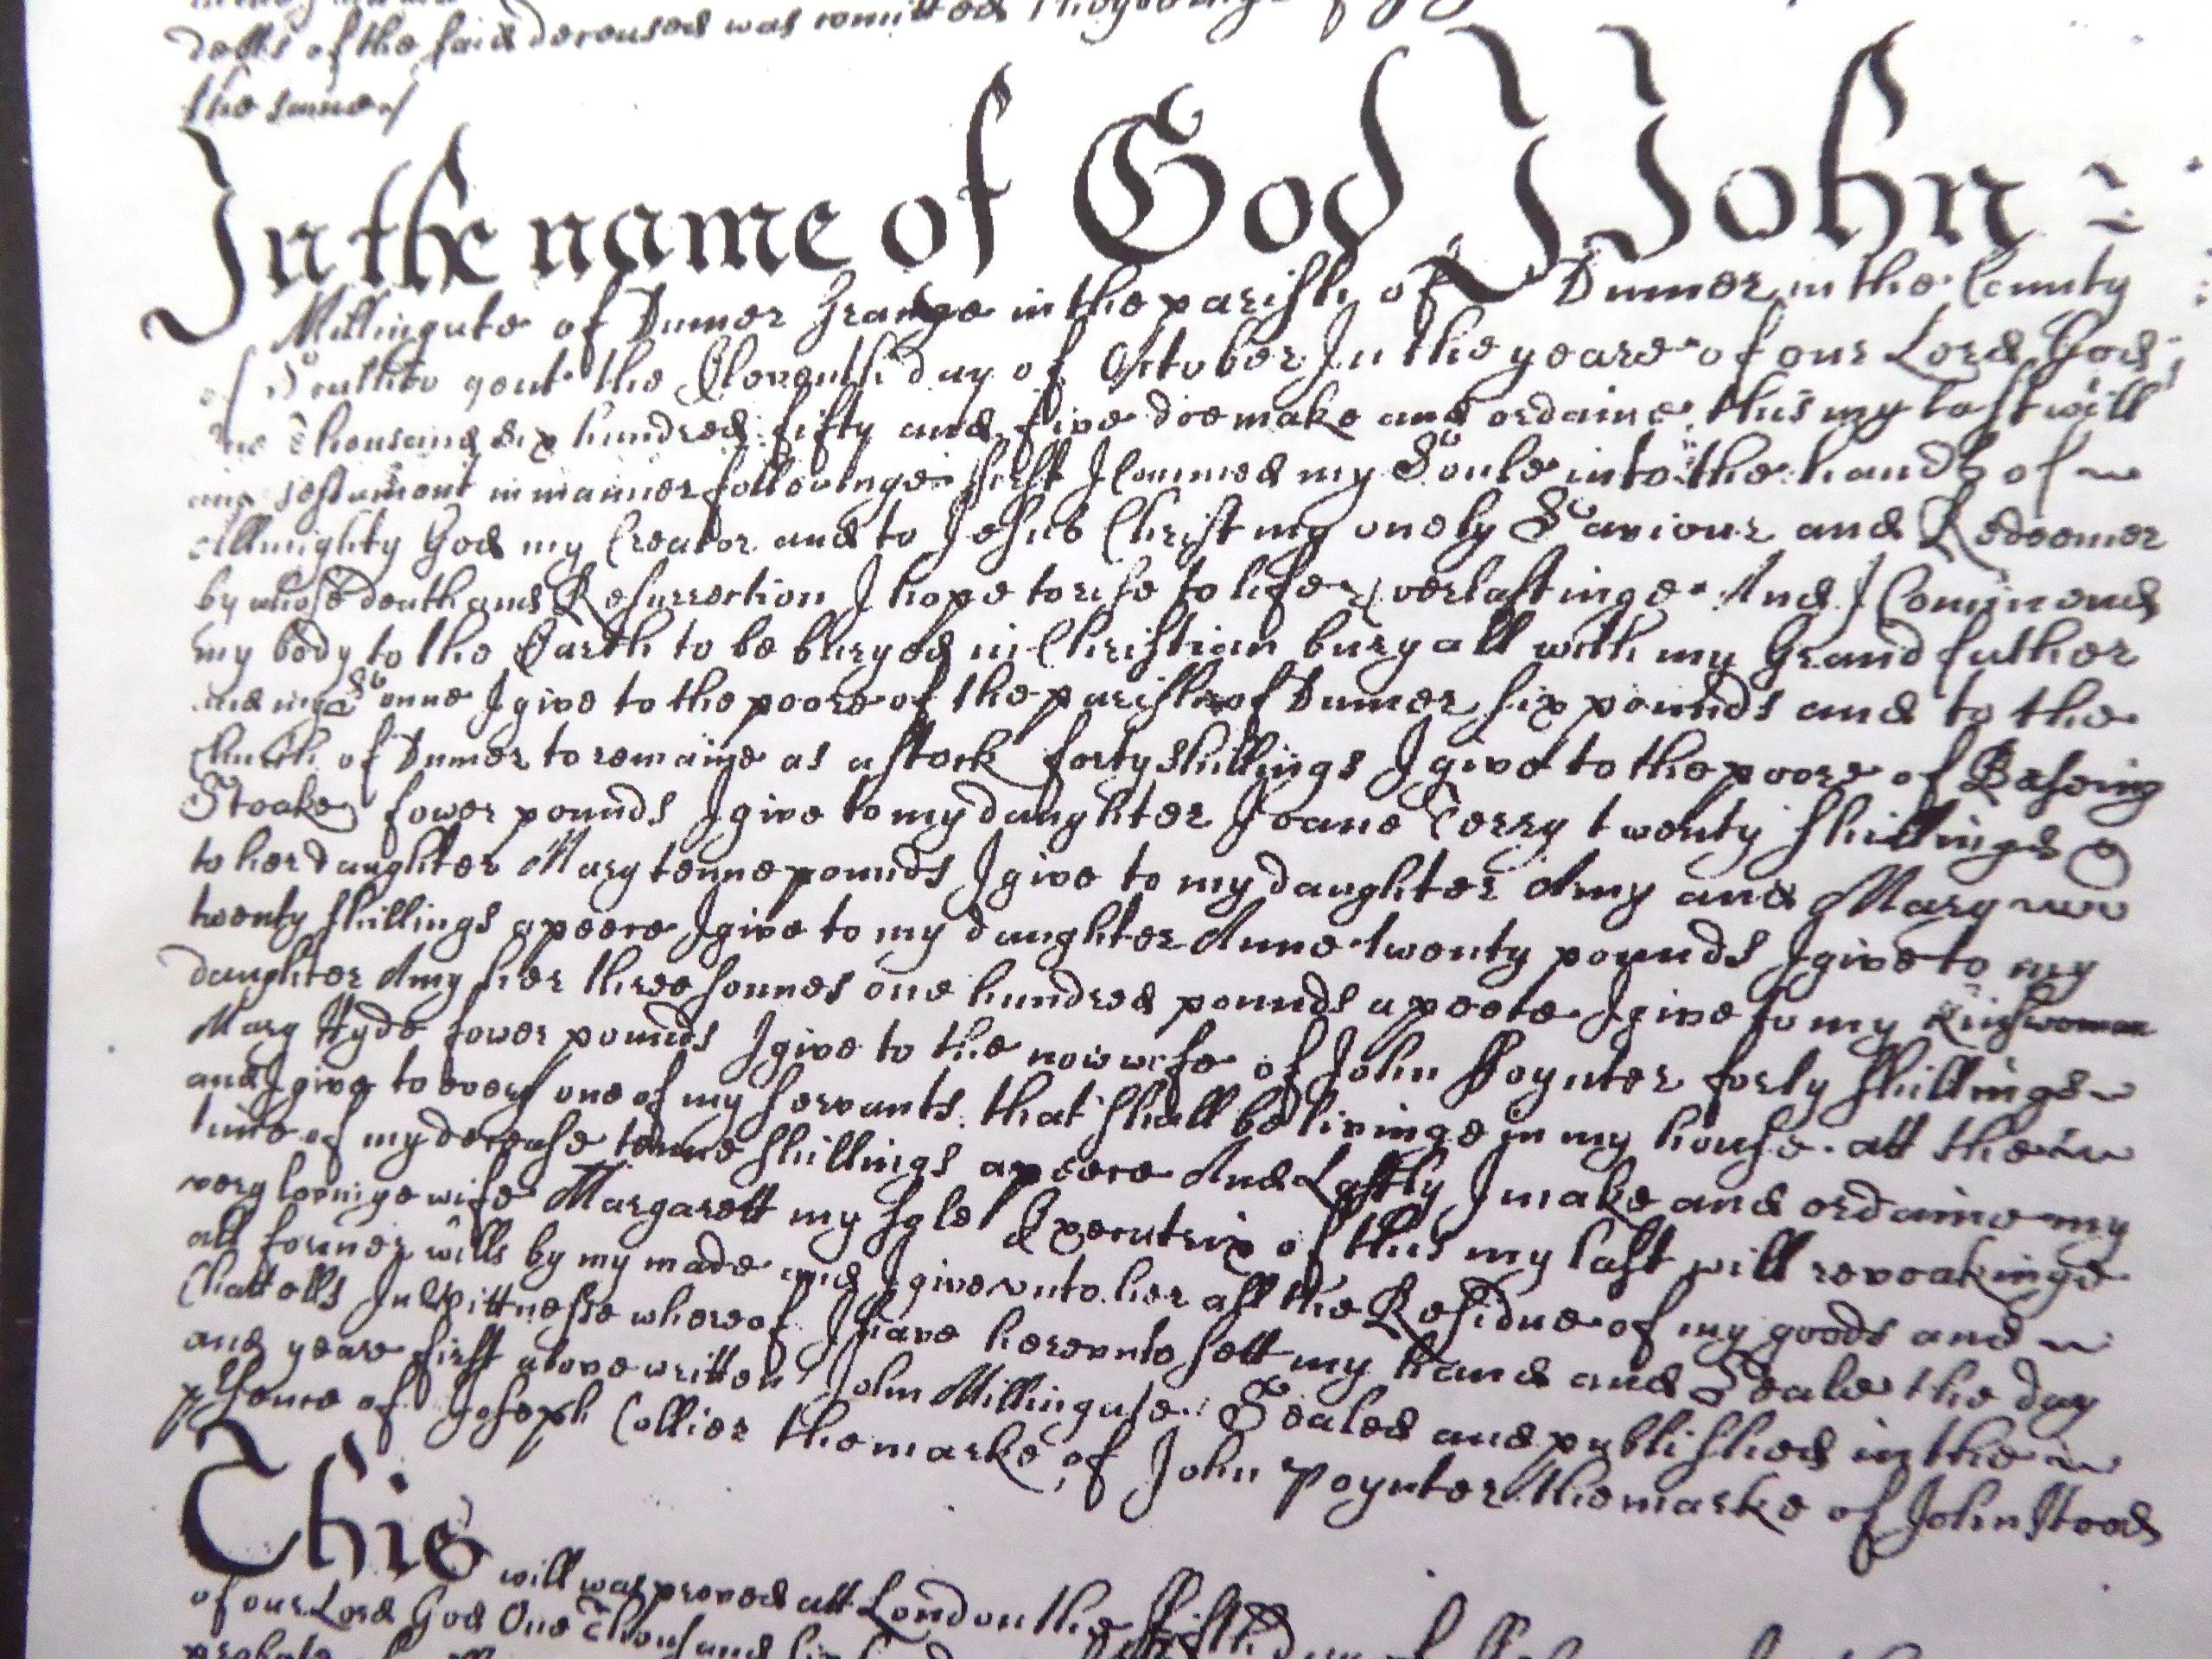 debts of the said deceased was comitted
the same
In the name of God I John
Millingate of Dumer Grange in the parish of Dumer in the County
of Southton gent the Eleventh day of October In the yeare of our Lord God
one thousand six hundred fifty and five doe make and ordaine this my last will
and testament in manner followinge ffirst I Commed my Soule into the hands of
Allmighty God my Creator and to Jesus Christ my onely Saviour and Redeemer
by whose death and Resurrection I hope to rise to life everlastinge And I Commend
my body to the Earth to be buryed in Christian buryall with my Grandfather
and my Sonne I give to the poore of the parish of Dumer six pounds and to the
Church of Dumer to remaine as a stock forty shillings I give to the poore of Baseing
Stoake fower pounds I give to my daughter Joane Terry twenty shillings &
to her daughter Mary tenne pounds I give to my daughter Amy and Mary
twenty shillings apeece I give to my daughter Anne twenty pounds I give to my
daughter Amy her three sonnes one hundred pounds apeece I give to my Kinswoman
Mary Hyde fower pounds I give to the now wife of John Poynter forty shillings
and I give to every one of my servants that shall be livinge in my house att the
time of my decease tenne shillings apeece And Lastly I make and ordaine my
very lovinge wife Margarett my sole Executrix of this my last will revoakinge
all former wills by my made and I give vnto her all the Residue of my goods and
Chattells In Wittnesse whereof I have herevnto sett my hand and Seale the day
and yeare first above written John Millingate Sealed and published in the
p̱sence of Joseph Collier the marke of John Poynter the marke of John Stood
This will was proved att London the ffifth day of
of our Lord God One Thousand six
probate